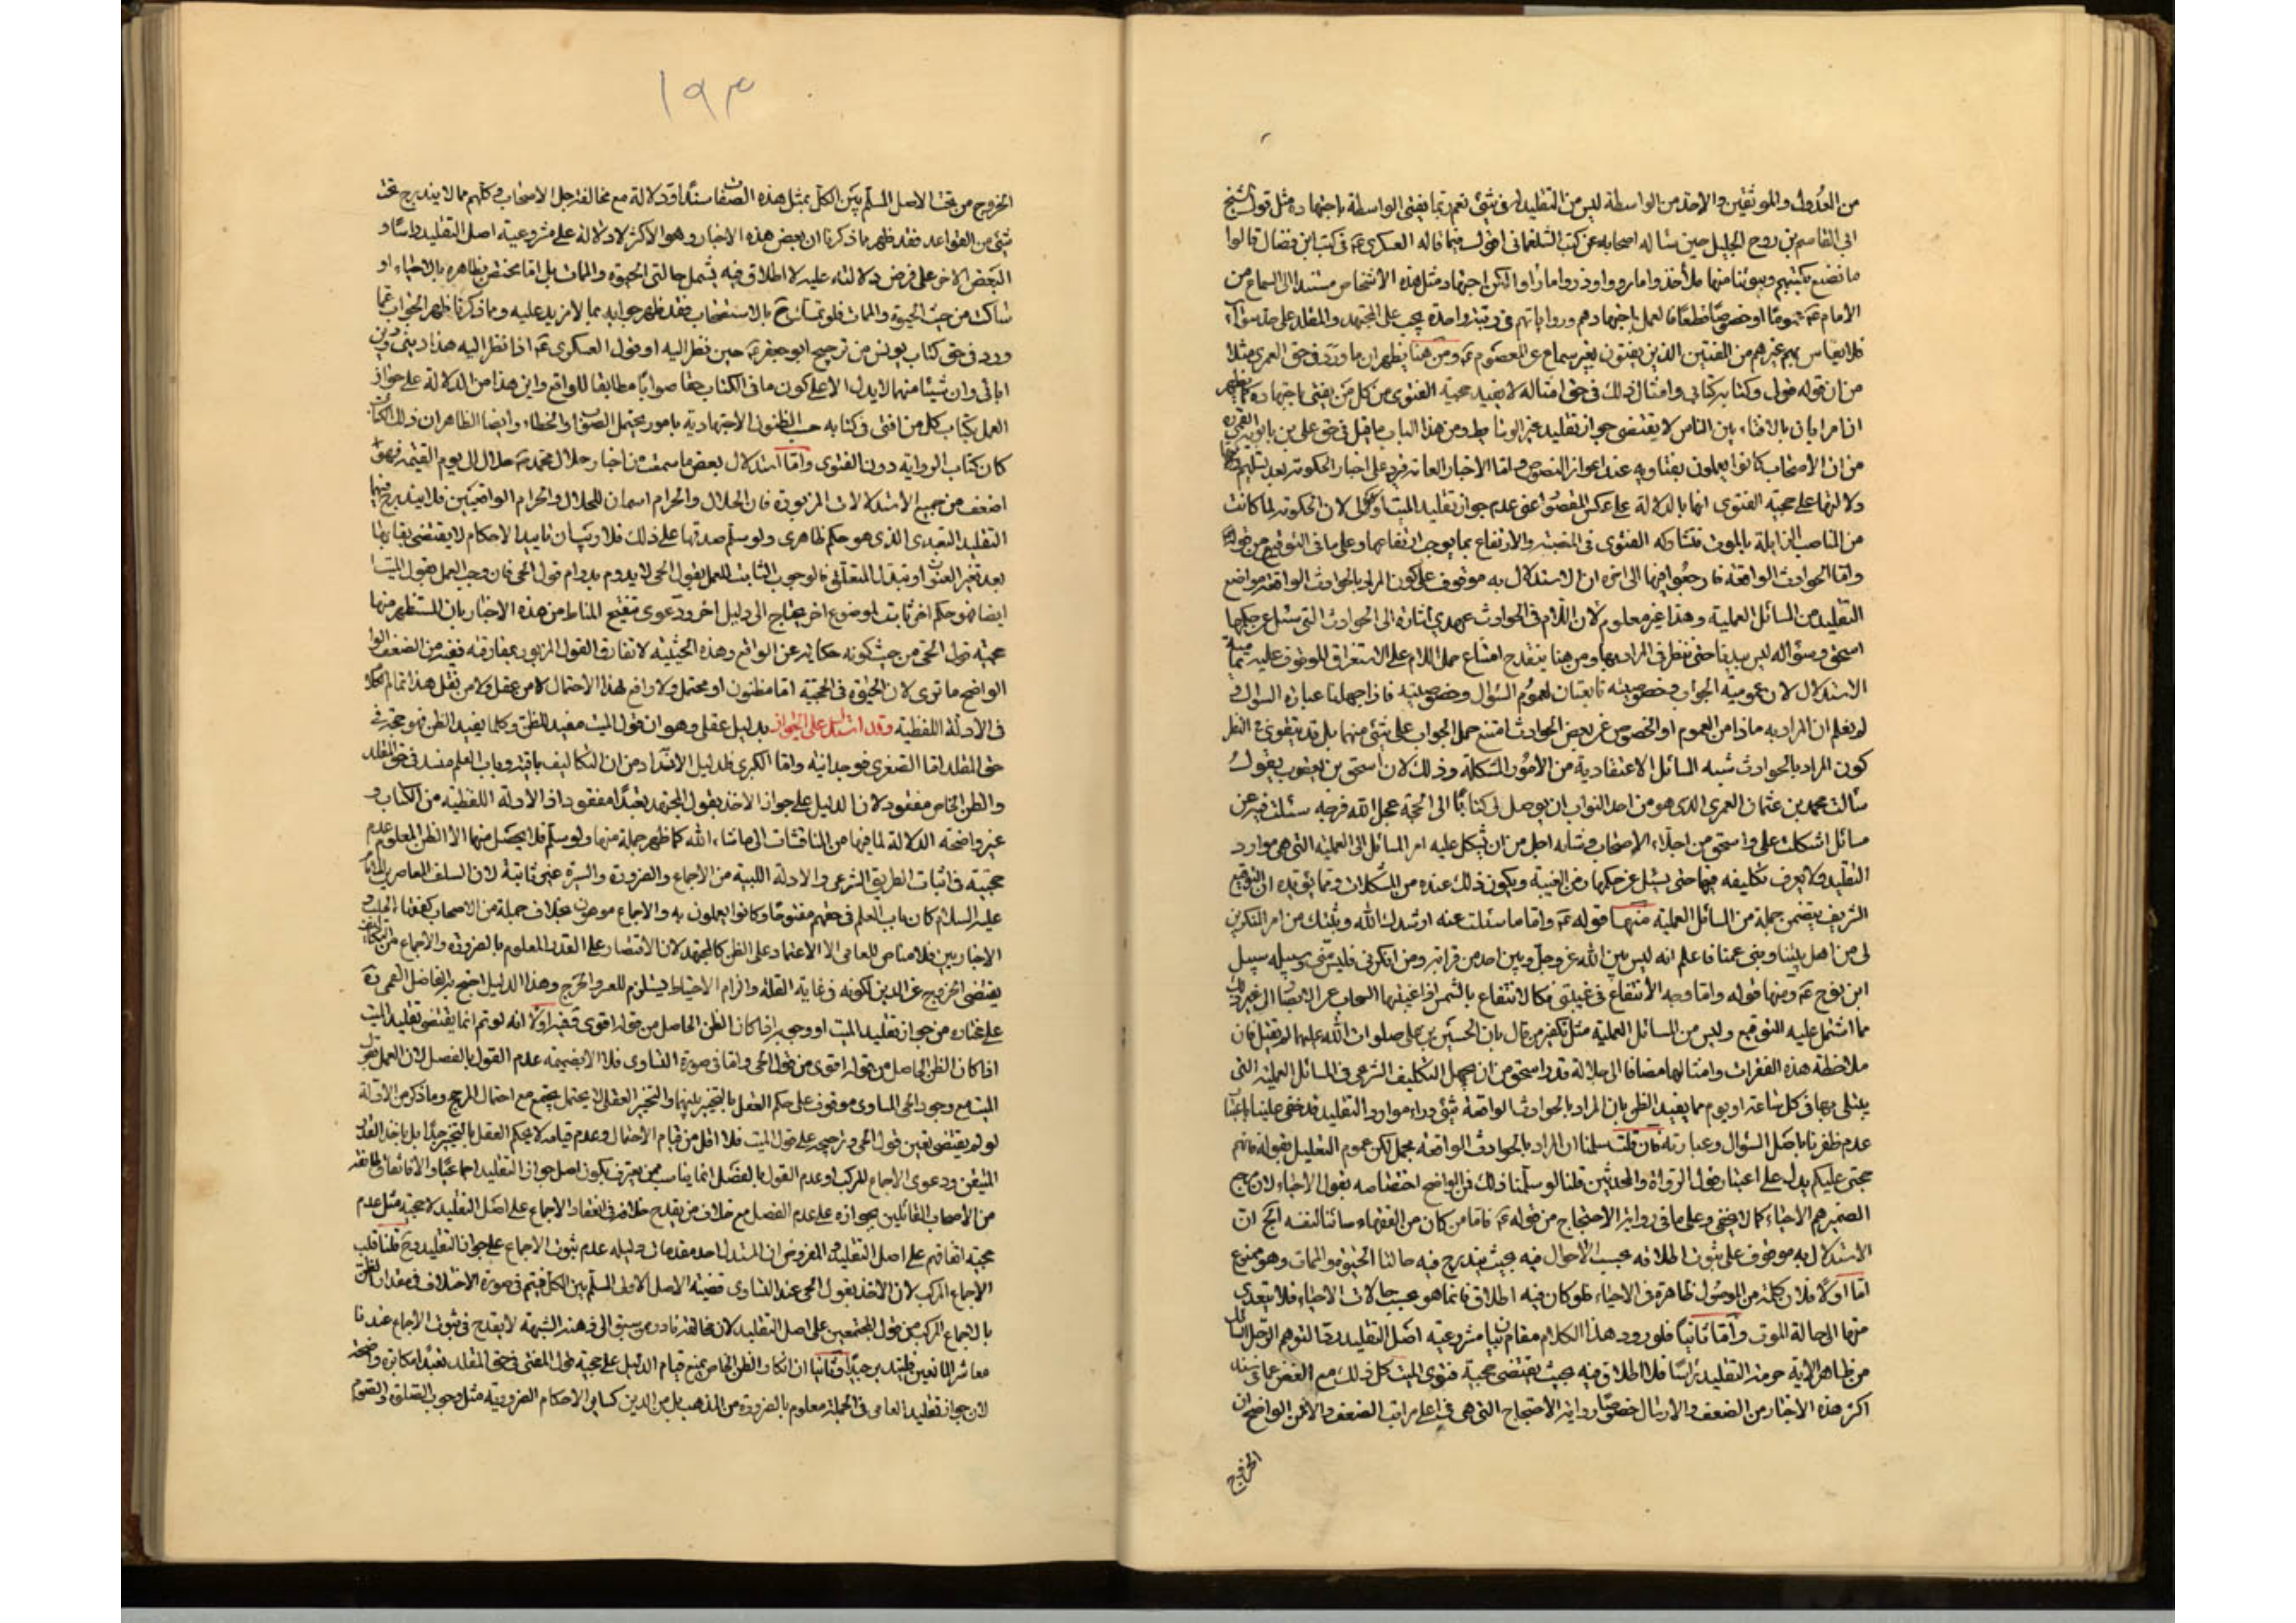 من العدول والموثقين والاخذ من الواسطة ليس من التقليد في شئ نعم ربما يفتى الواسطة باجتهاده مثل قول الشيخ
ابى القاسم بن روح الجليل حين سأله اصحابه عن كتب الشلمغانى اقول فيها ما قاله العسكرى ع فى كتب ابن فضال قالوا
ما نصنع بكتبهم وبيوتنا منها ملأ خذوا ما رووا وذروا ما رأوا لكن اجتهاد مثل هذه الأشخاص مستند الى السماع من
الأمام ع عموما او خصوصا قطعا فالعمل باجتهادهم ورواياتهم فى رتبة واحدة يجب على المجتهد والمقلد على حد سواء
فلا يقاس بهم غيرهم من المفتين الذين يفتون بغير سماع عن المعصوم ع ومن هنا يظهر ان ما ورد فى حق العمرى مثلا
من ان قوله قولى وكتابه كتابى وامثال ذلك فى حق امثاله لا يفيد حجية الفتوى من كل من يفتى باجتهاده كما يظهر
ان امر ابان بالافتاء بين الناس لا يقتضى جواز تقليد غير الوسائط ومن هذا الباب ما قيل فى حق على بن بابويه القمى ره
من ان الأصحاب كانوا يعملون بفتاويه عند اعواز النصوص واما الأخبار العامة فيرد على اخبار الحكومة بعد تسليم
دلالتها على حجية الفتوى انها بالدلالة على عكس المقصود اعنى عدم جواز تقليد الميت اولى لان الحكومة لما كانت
من المناصب الزايلة بالموت فتشاركه الفتوى فى المنصبية والارتفاع بما يوجب ارتفاعها وعلى ما فى التوقيع من قوله
واما الحوادث الواقعة فارجعوا فيها الى اخره ان الاستدلال به موقوف على كون المراد بالحوادث الواقعة مواضع
التقليد من المسائل العملية وهذا غير معلوم لان اللام فى الحوادث عهدى اشارة الى الحوادث التى سئل عن حكمها
اسحق وسؤاله ليس بيدنا حتى ننظر فى المراد بها ومن هنا ينقدح امتناع حمل اللام على الاستغراق الموقوف عليه تمامية
الاستدلال لان عمومية الجواب وخصوصيته تابعتان لعموم السؤال وخصوصيته فاذا جهلنا عبارة السؤال و
لم نعلم ان المراد به ماذا من العموم او الخصوص عن بعض الحوادث امتنع حمل الجواب على شئ منهما بل قد يتقوى فى النظر
كون المراد بالحوادث شبه المسائل الاعتقادية من الأمور المشكلة وذلك لان اسحق بن يعقوب يقول
سألت محمد بن عثمان العمرى الذى هو من احد النواب ان يوصل لى كتابا الى الحجة عجل الله فرجه سئلت فيه عن
مسائل اشكلت على واسحق من اجلاء الأصحاب وشأنه اجل من ان يشكل عليه امر المسائل العملية التى هى موارد
التقليد ولا يعرف تكليفه فيها حتى يسئل عن حكمها زمن الغيبة ويكون ذلك عنده من المشكلات ومما يؤيده ان التوقيع
الشريف يتضمن جملة من المسائل العملية منها قوله ع واما ما سئلت عنه ارشدك الله وثبتك من امر المنكرين
لى من اهل بيتنا وبنى عمنا فاعلم انه ليس بين الله عز وجل وبين احد من قرابة ومن انكرنى فليس منى وسبيله سبيل
ابن نوح ع ومنها قوله واما وجه الأنتفاع فى غيبتى فكالانتفاع بالشمس اذا غيبتها السحاب عن الابصار الى غير ذلك
مما اشتمل عليه التوقيع وليس من المسائل العملية مثل تكفير من قال بان الحسين بن على صلوات الله عليهما لم يقتل فان
ملاحظة هذه الفقرات وامثالها مضافا الى جلالة قدر اسحق من ان يجهل التكليف الشرعى فى المسائل العملية التى
يبتلى بها فى كل ساعة او يوم مما يفيد الظن بان المراد بالحوادث الواقعة شئ وراء موارد التقليد قد خفى علينا باعتبار
عدم ظفرنا باصل السؤال وعبارته فان قلت سلمنا ان المراد بالحوادث الواقعة مجمل لكن عموم التعليل بقوله فانهم
حجتى عليكم يدل على اعتبار قول الرواة والمحدثين قلنا لو سلمنا ذلك فمن الواضح اختصاصه بقول الاحياء لان مرجع
الضمير هم الاحياء كما لا يخفى وعلى ما فى رواية الاحتجاج من قوله ع فاما من كان من الفقهاء صائنا لنفسه الخ ان
الاستدلال به موقوف على ثبوت اطلاقه بحسب الاحوال فيه بحيث يندرج فيه حالتا الحيوة والممات وهو ممنوع
اما اولا فلان كلمة من الموصول ظاهرة فى الاحياء فلو كان فيه اطلاق فانما هو بحسب حالات الاحياء فلا يتعدى
منها الى حالة الموت واما ثانيا فلورود هذا الكلام مقام بيان مشروعية اصل التقليد دفعا لتوهم
من ظاهر الآية حرمة التقليد رأسا فلا اطلاق فيه بحيث يقتضى حجية فتوى الميت كل ذلك مع الغض عما فى سند
اكثر هذه الاخبار من الضعف والارسال خصوصا رواية الأحتجاج التى هى فى اعلى مراتب الضعف والا فمن الواضح ان
الخروج
١٩٣
الخروج من تحت الاصل المسلم بين الكل بمثل هذه الصفات سندا ودلالة مع مخالفة جل الاصحاب وكلهم مما لا يندرج تحت
شئ من القواعد فقد ظهر مما ذكرنا ان بعض هذه الاخبار وهو الأكثر لا دلالة له على مشروعية اصل التقليد رأسا و
البعض الاخر على فرض دلالته عليه لا اطلاق فيه يشمل حالتى الحيوة والممات بل اما مختص بظاهره بالاحياء او
ساكت من حيث الحيوة والممات فلو تمسك ح بالاستصحاب فقد ظهر جوابه بما لا مزيد عليه ومما ذكرنا ظهر الجواب عما
ورد فى حق كتاب يونس من ترحيم ابو جعفر ع حين نظر اليه او قول العسكرى ع اذا نظر اليه هذا دينى ودين
ابائى وان شيئا منهما لا يدل الا على كون ما فى الكتاب حقا صوابا مطابقا للواقع واين هذا من الدلالة على جواز
العمل بكتاب كل من افتى فى كتابه حسب الظنون الاجتهادية بامور يحتمل الصواب والخطاء وايضا الظاهر ان ذلك الكتاب
كان كتاب الرواية دون الفتوى واما استدلال بعض ما سمعت من اخبار حلال محمد ص حلال الى يوم القيمة فهو
اضعف من جميع الاستدلالات المزبورة فان الحلال والحرام اسمان للحلال والحرام الواقعيين فلا يندرج فيها
التقليد التعبدى الذى هو حكم ظاهرى ولو سلم صدقها على ذلك فلا ريب ان تابيد الاحكام لا يقتضى بقاءها
بعد تغير العنوان او تبدل المتعلق فالوجوب الثابت للعمل بقول الحى لا يدوم بدوام قول الحى فان وجب العمل بقول الميت
ايضا فهو حكم اخر ثابت لموضوع اخر يحتاج الى دليل اخر ودعوى تنقيح المناط من هذه الاخبار بان المستظهر منها
حجية قول الحى من حيث كونه حكاية عن الواقع وهذه الحيثية لا تفارق القول المزبور بمفارقة ففيه من الضعف
الواضح ما ترى لان الحيوة فى الحجية اما مظنون او محتمل ولا رافع لهذا الاحتمال لا من عقل ولا من نقل هذا تمام الكلام
فى الأدلة اللفظية وقد استدل على الجواز بدليل عقلى وهو ان قول الميت مفيد للظن وكلما يفيد الظن فهو حجة فى
حق المقلد اما الصغرى فوجدانية واما الكبرى فلدليل الانسداد من ان التكاليف باقية وباب العلم منسد فى حق المقلد
والظن الخاص مفقود لان الدليل على جواز الاخذ بقول المجتهد تعبدا مفقود اذ الأدلة اللفظية من الكتاب و
غير واضحة الدلالة لما فيها من المناقشات الى ما شاء الله كما ظهر جملة منها ولو سلم فلا يحصل منها الا الظن المعلوم عدم
حجيته فى اثبات الطريق الشرعى والادلة اللبية من الأجماع والضرورة والسيرة غير ثابتة لان السلف المعاصرين للامام
عليه السلام كان باب العلم فى حقهم مفتوحا وكانوا يعملون به والاجماع موهون بخلاف جملة من الاصحاب كفقهاء الحلب و
الاخباريين فلا مناص للعامى الا الاعتماد على الظن كالمجتهد لان الاقتصار على القدر المعلوم بالضرورة والأجماع من
يقتضى الخروج عن الدين لكونه فى غاية القلة والزام الاحتياط مستلزم للعسر والحرج وهذا الدليل احتج به الفاضل القمى ره
على مختاره من جواز تقليد الميت او وجوبه اذا كان الظن الحاصل من قوله اقوى ففيه اولا انه لو تم انما يقتضى تقليد الميت
اذا كان الظن الحاصل من قوله اقوى من قول الحى واما فى صورة التساوى فلا الا بضميمة عدم القول بالفصل لان العمل بقول
الميت مع وجود الحى المساوى موقوف على حكم العقل بالتخيير بينهما والتخيير العقلى لا يجتمع مع احتمال المرجح وما ذكر من الادلة
لو لم يقتضى تعين قول الحى وترجيحه على قول الميت فلا اقل من قيام الاحتمال وعدم قيامه لا يحكم العقل بالتخيير جدا بل باخذ القدر
المتيقن ودعوى الاجماع المركب او عدم القول بالفصل انما يناسب ممن يعترف بكون اصل جواز التقليد اجماعيا والا فاتفاق طائفة
من الأصحاب القائلين بجوازه على عدم الفصل مع خلاف من يقدح خلافه فى انعقاد الاجماع على اصل التقليد لا حجية مثل عدم
حجية اتفاقهم على اصل التقليد والمفروض ان المستدل احد مقدمات دليله عدم ثبوت الاجماع على جواز التقليد وح قلنا قلب
الأجماع المركب لان الاخذ بقول الحى عند التساوى قضية الاصل الاولى المسلم بين الكل فيتم فى صورة الاختلاف فى مقدار الظن
بالاجماع المركب من قول المجتمعين على اصل التقليد لان مخالفة نادر ممن سبق الى ذهنه الشبهة لا يقدح فى ثبوت الأجماع عندنا
معاشر المانعين فليتدبر جيدا وثانيا ان انكار الظن الخاص بمنع قيام الدليل على حجية قول المفتى فى حق المقلد تعبدا مكابرة واضحة
لان جواز تقليد العامى فى الجملة معلوم بالضرورة من المذهب بل من الدين كساير الاحكام الضرورية مثل وجوب الصلوة والصوم